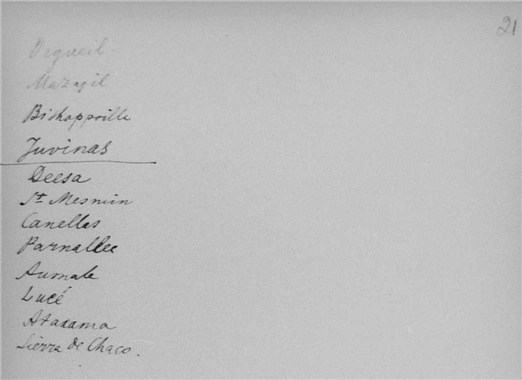 21
Orgueil.
Mazapil
Bishopville
Juvinas
Deesa
St Mesmin
Canellas
Parnallee
Aumale
Lucé
Atacama
Sierra de Chaco.